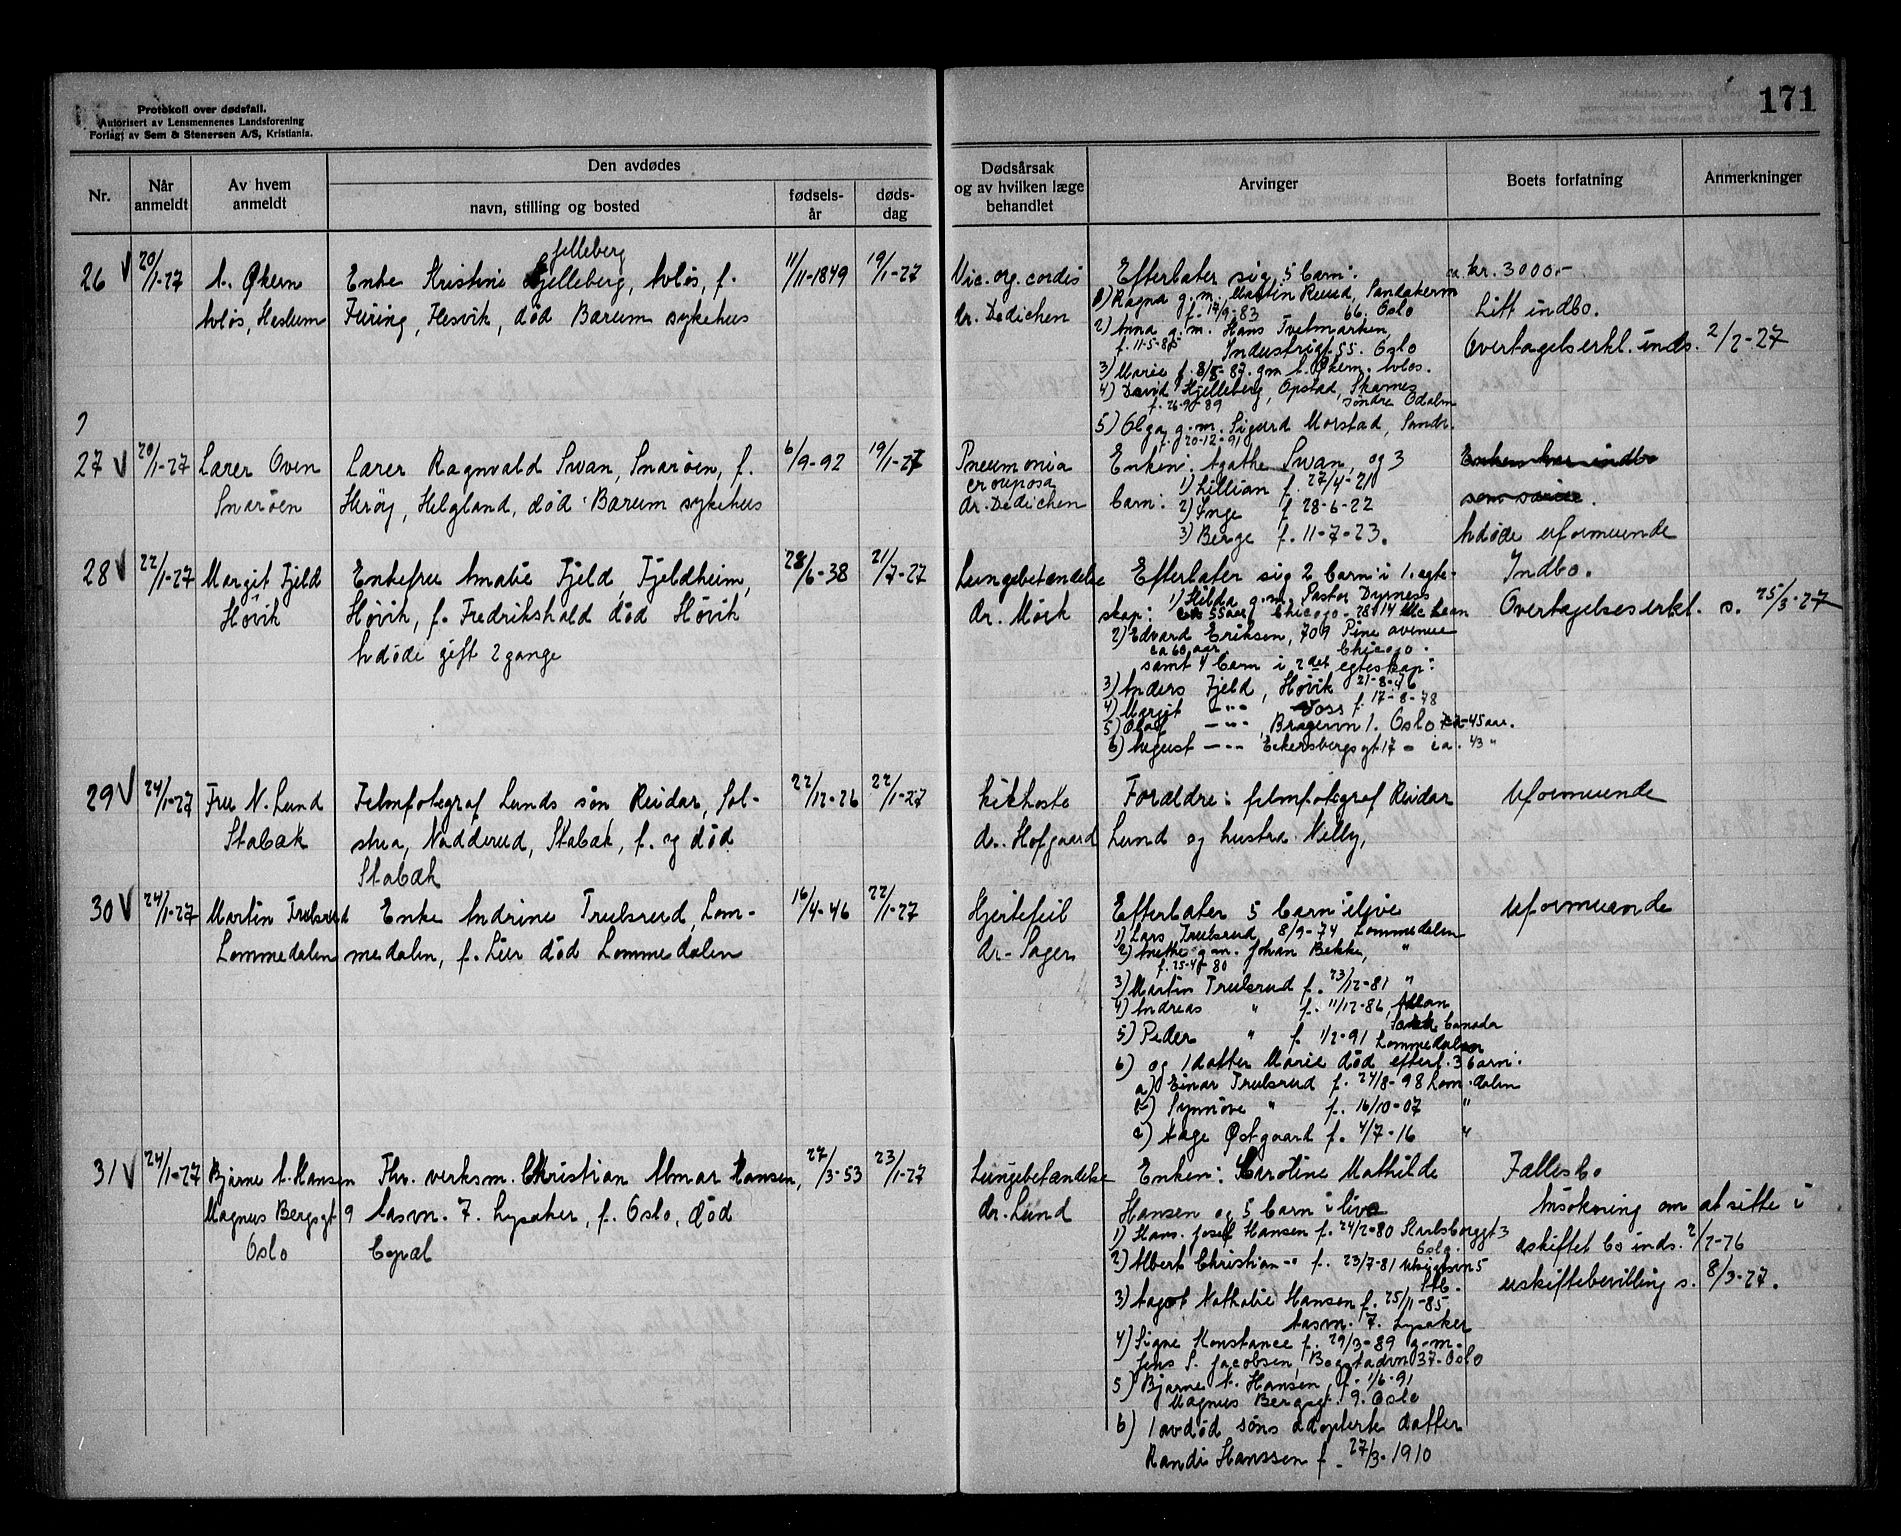 171
Protokoll over dødsfall.
Autorisert av Lensmennenes Landsforening
Forlagt av Sem & Stenersen A/S, Kristiania.
Nr.
Når anmeldt
Av hvem anmeldt
Den avdødes
navn, stilling og bosted
fødsels-år
døds-dag
Dødsårsak og av hvilken læge behandlet
Arvinger
Boets forfatning
Anmerkninger
26 20/1-27
A. Økern
Avløs, Haslum
fjelleberg
Enke Kristine Kjelleberg, Avløs, f.
Furing, Hesvik, død Bærum sykehus
11/11-1849 19/1-27
Vic. org. cordis
dr. Dedichen
Efterlater sig 5 barn:
1) Ragna g.m. Martin Ruud, Sandakervn
f. 17/9-83 66. Oslo
2) Anna g.m. Hans Tvetmarken
f. 11-5-85 Industrigt. 55. Oslo
3) Marie f. 8/8-87. gm A. Økern. Avløs.
4) David Hjelleberg, Opstad, Skarnes
f. 26-9-89 søndre Odalen
5) Olga g.m. Sigurd Morstad, Sandv.
f. 20-12-91
ca. kr. 3000.-
Litt indbo.
Overtagelseserkl. inds. 2/2-27
27 20/1-27
Lærer Oven
Snarøen
Lærer Ragnvald Swan, Snarøen, f.
Herøy, Helgland, død Bærum sykehus
6/9-92 19/1-27
Pneumonia
crouposa
dr. Dedichen
Enken: Agathe Swan, og 3
barn: 1) Lillian f. 27/4-20
2) Inge f 28-6-22
3) Berge f. 11-7-23.
Enken har indbo
Avdøde uformuende
28 22/1-27
Margit Fjeld
Høvik
Enkefru Amalie Fjeld, Fjeldheim,
Høvik, f. Fredrikshald død Høvik
Avdøde gift 2 gange
28/6-38 21/7-27
Lungebetændelse
dr. Mørk
Efterlater sig 2 barn i 1. egte-
skap: 1) Hilda g.m. Pastor Dyrness
55 aar, Chicago - 2814 Mc Lean
2) Edvard Eriksen, 709 Pine avenue
ca 60 aar. Chicago.
samt 4 barn i 2det egteskap:
3) Anders Fjeld, Høvik 21-8-76
4) Margit -"- Voss f. 17-8-78
5) Olaf -"- Bragevn 1. Oslo ca-45 aar.
6) August -"- Eckersbergsgt 17 - ca. 43 "
Indbo.
Overtagelseserkl. s. 25/3-27
29 24/1-27
Fru N. Lund
Stabæk
Filmfotograf Lunds søn Reidar, Sol-
stua, Nadderud, Stabæk, f. og død
Stabæk
22/12-26 22/1-27
Kikhoste
dr. Hofgaard
Forældre: filmfotograf Reidar
Lund og hustru Nelly,
Uformuende
30 24/1-27
Martin Trulsrud
Lommedalen
Enke Andrine Trulsrud, Lom-
medalen, f. Lier død Lommedalen
16/4-46 22/1-27
Hjertefeil
dr. Sager
Efterlater 5 barn ilive
1) Lars Trulsrud, 8/9-74 Lommedalen
2) Anethe g.m. Johan Bekke, "
f. 25-4-80
3) Martin Trulsrud f. 23/12-81 "
4) Andreas " f. 11/12-86,
Canada
5) Peder " f 1/2-91 Lommedalen
6) og 1 datter Marie død efterl. 3 barn:
a) Einar Trulsrud f. 24/8-98 Lom.dalen
b) Synnøve " f. 16/10-07 "
c) Aage Østgaard f. 4/7-16 "
Uformuende
31 24/1-27
Bjarne A. Hansen
Magnus Bergsgt. 9
Oslo
Fhv. verksm. Christian Almar Hansen,
Aasvn. 7. Lysaker, f. Oslo, død
27/3-53 23/1-27
Lungebetændelse
dr. Lund
Enken: Caroline Mathilde
Hansen og 5 barn i live
1) Hans. Josef Hansen f. 24/2-80 Karlsborggt 3
Oslo.
2) Albert Christian -" f. 23/7-81
3) Aagot Nathalie Hansen f. 25/11-85
Aasvn. 7. Lysaker
4) Signe Konstance f. 29/3-89 g.m.
Jens S. Jacobsen, Bogstadvn 37. Oslo
5) Bjarne A. Hansen, f. 1/6-91
Magnus Bergsgt. 9. Oslo
6) 1 avdød søns adopterte datter
Randi Hanssen f. 27/3-1910
Fællesbo
Ansøkning om at sitte i
uskiftet bo inds. 2/2-26
uskiftebevilling s. 8/3-27.